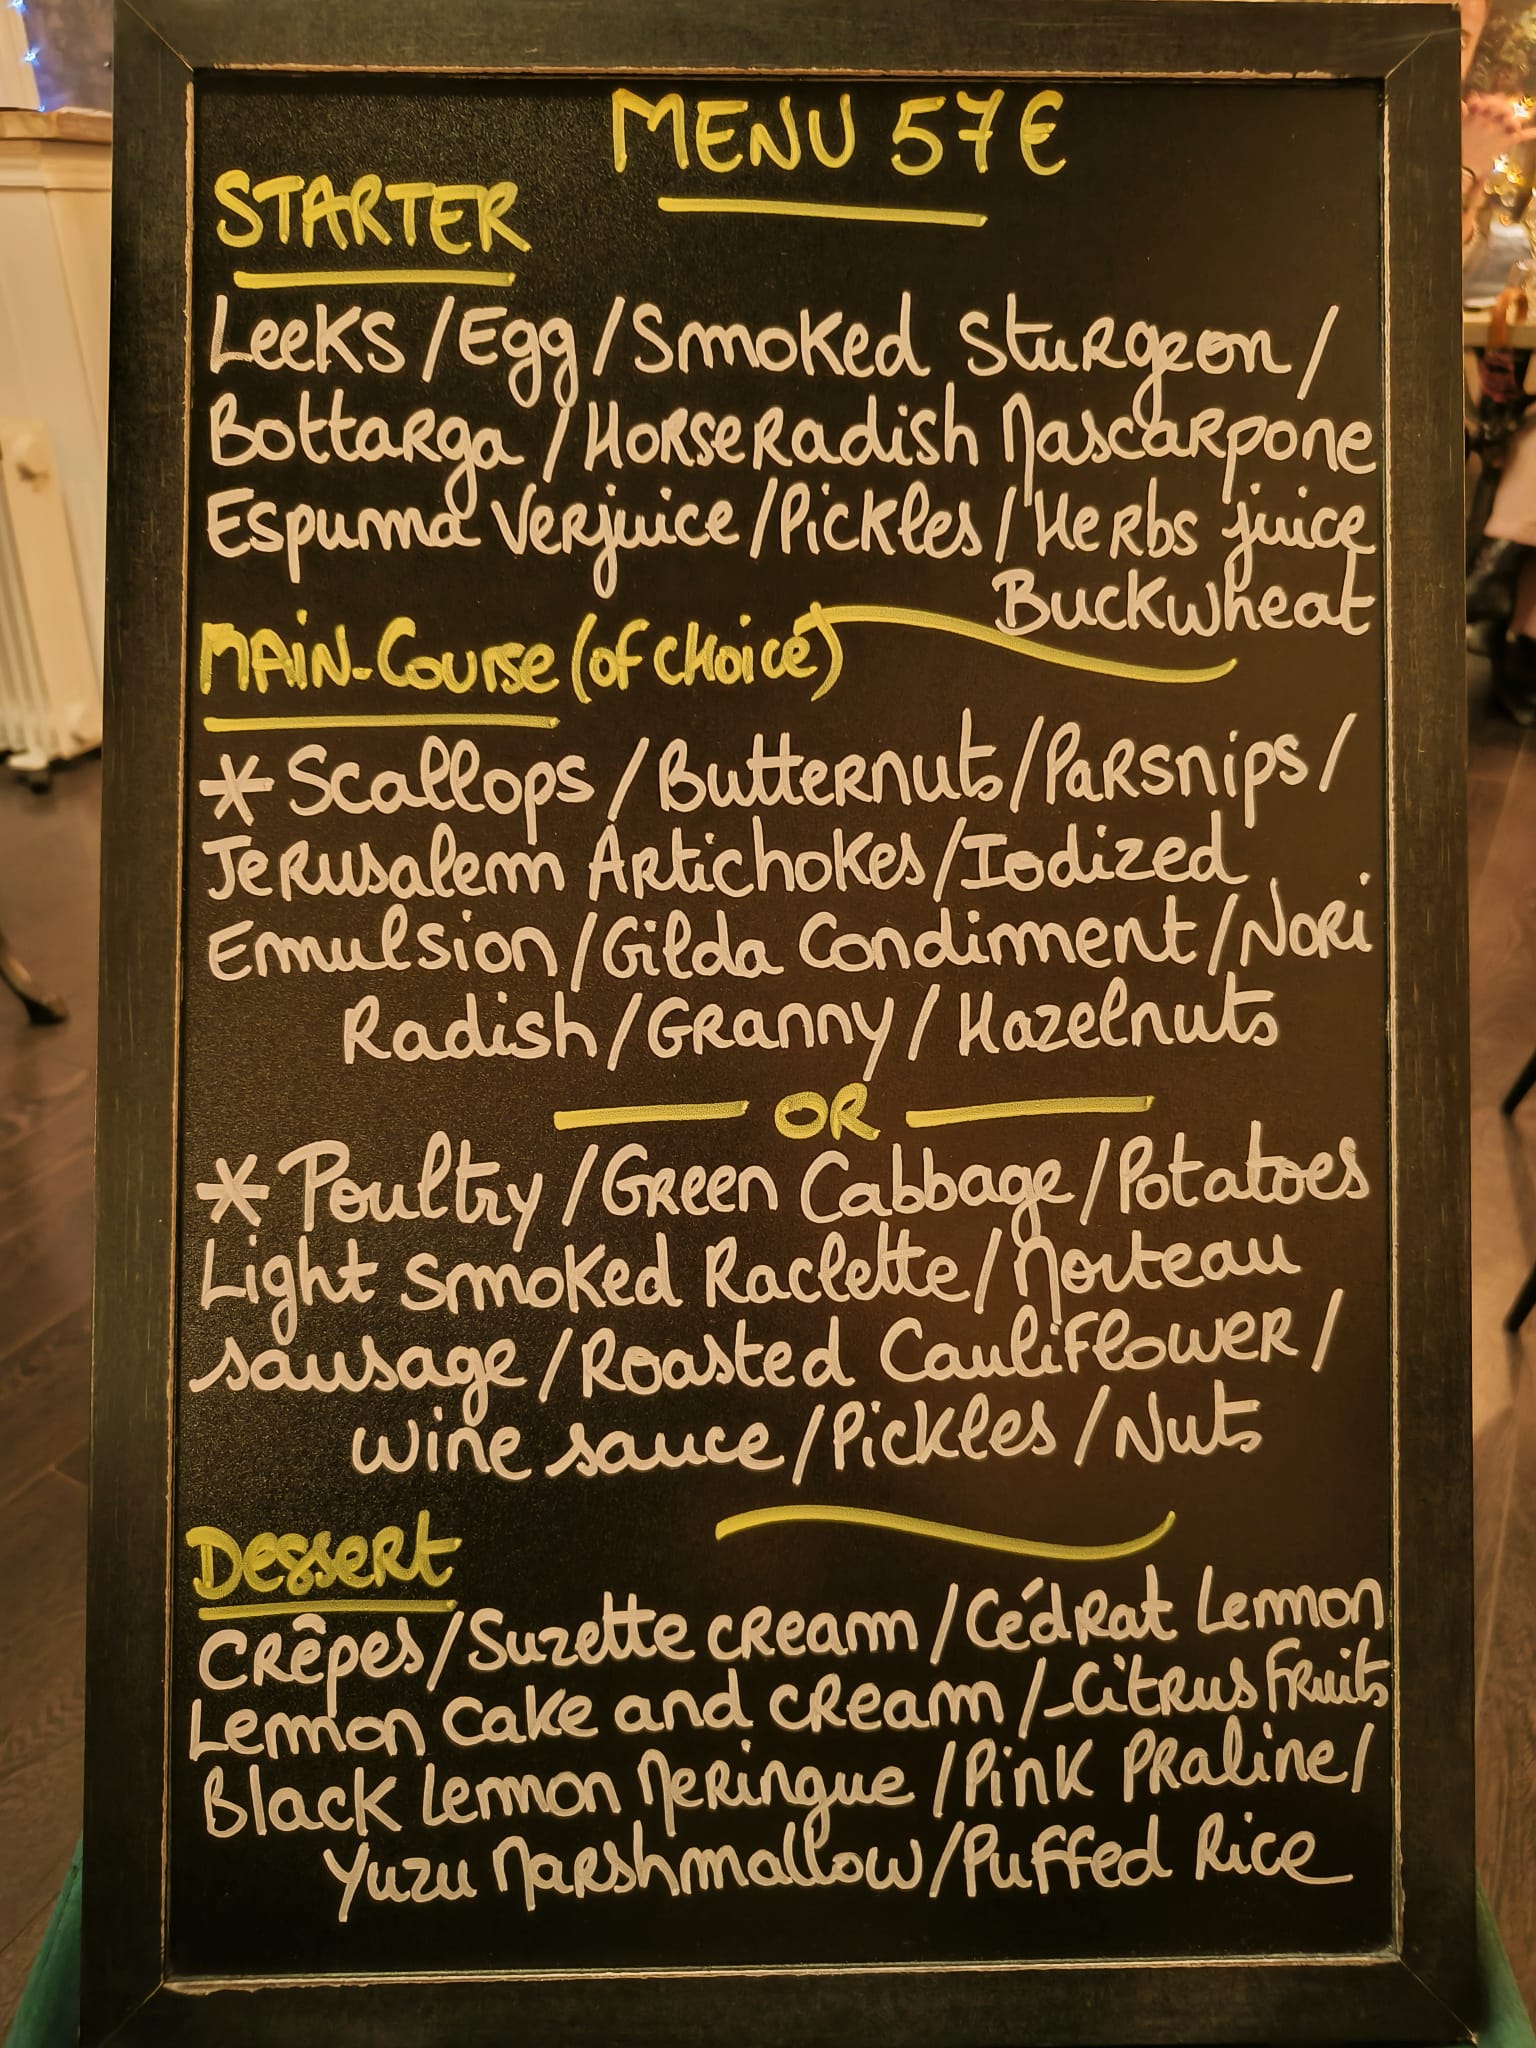 MENU 57€
STARTER
Leeks / Egg / Smoked Sturgeon /
Bottarga / Horseradish Mascarpone
Espuma Verjuice / Pickles / Herbs juice
Buckwheat
MAIN-COURSE (OF CHOICE)
* Scallops / Butternuts / Parsnips /
Jerusalem Artichokes / Iodized
Emulsion / Gilda Condiment / Nori
Radish / Granny / Hazelnuts
OR
* Poultry / Green Cabbage / Potatoes
Light smoked Raclette / Morteau
sausage / Roasted Cauliflower /
wine sauce / Pickles / Nuts
Dessert
Crêpes / Suzette cream / Cédrat Lemon
Lemon Cake and cream / Citrus Fruits
Black Lemon Meringue / Pink Praline /
Yuzu Marshmallow / Puffed Rice